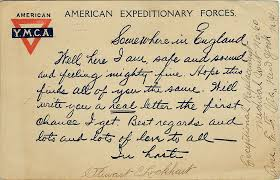 AMERICAN
Y.M.C.A.
AMERICAN EXPEDITIONARY FORCES.
Somewhere in England
Well here I am, safe and sound
and feeling mighty fine. Hope this
finds all of you the same. Will
write you a real letter the first
chance I get. Best regards and
lots and lots of love to all—
In haste
Stewart Lockhart